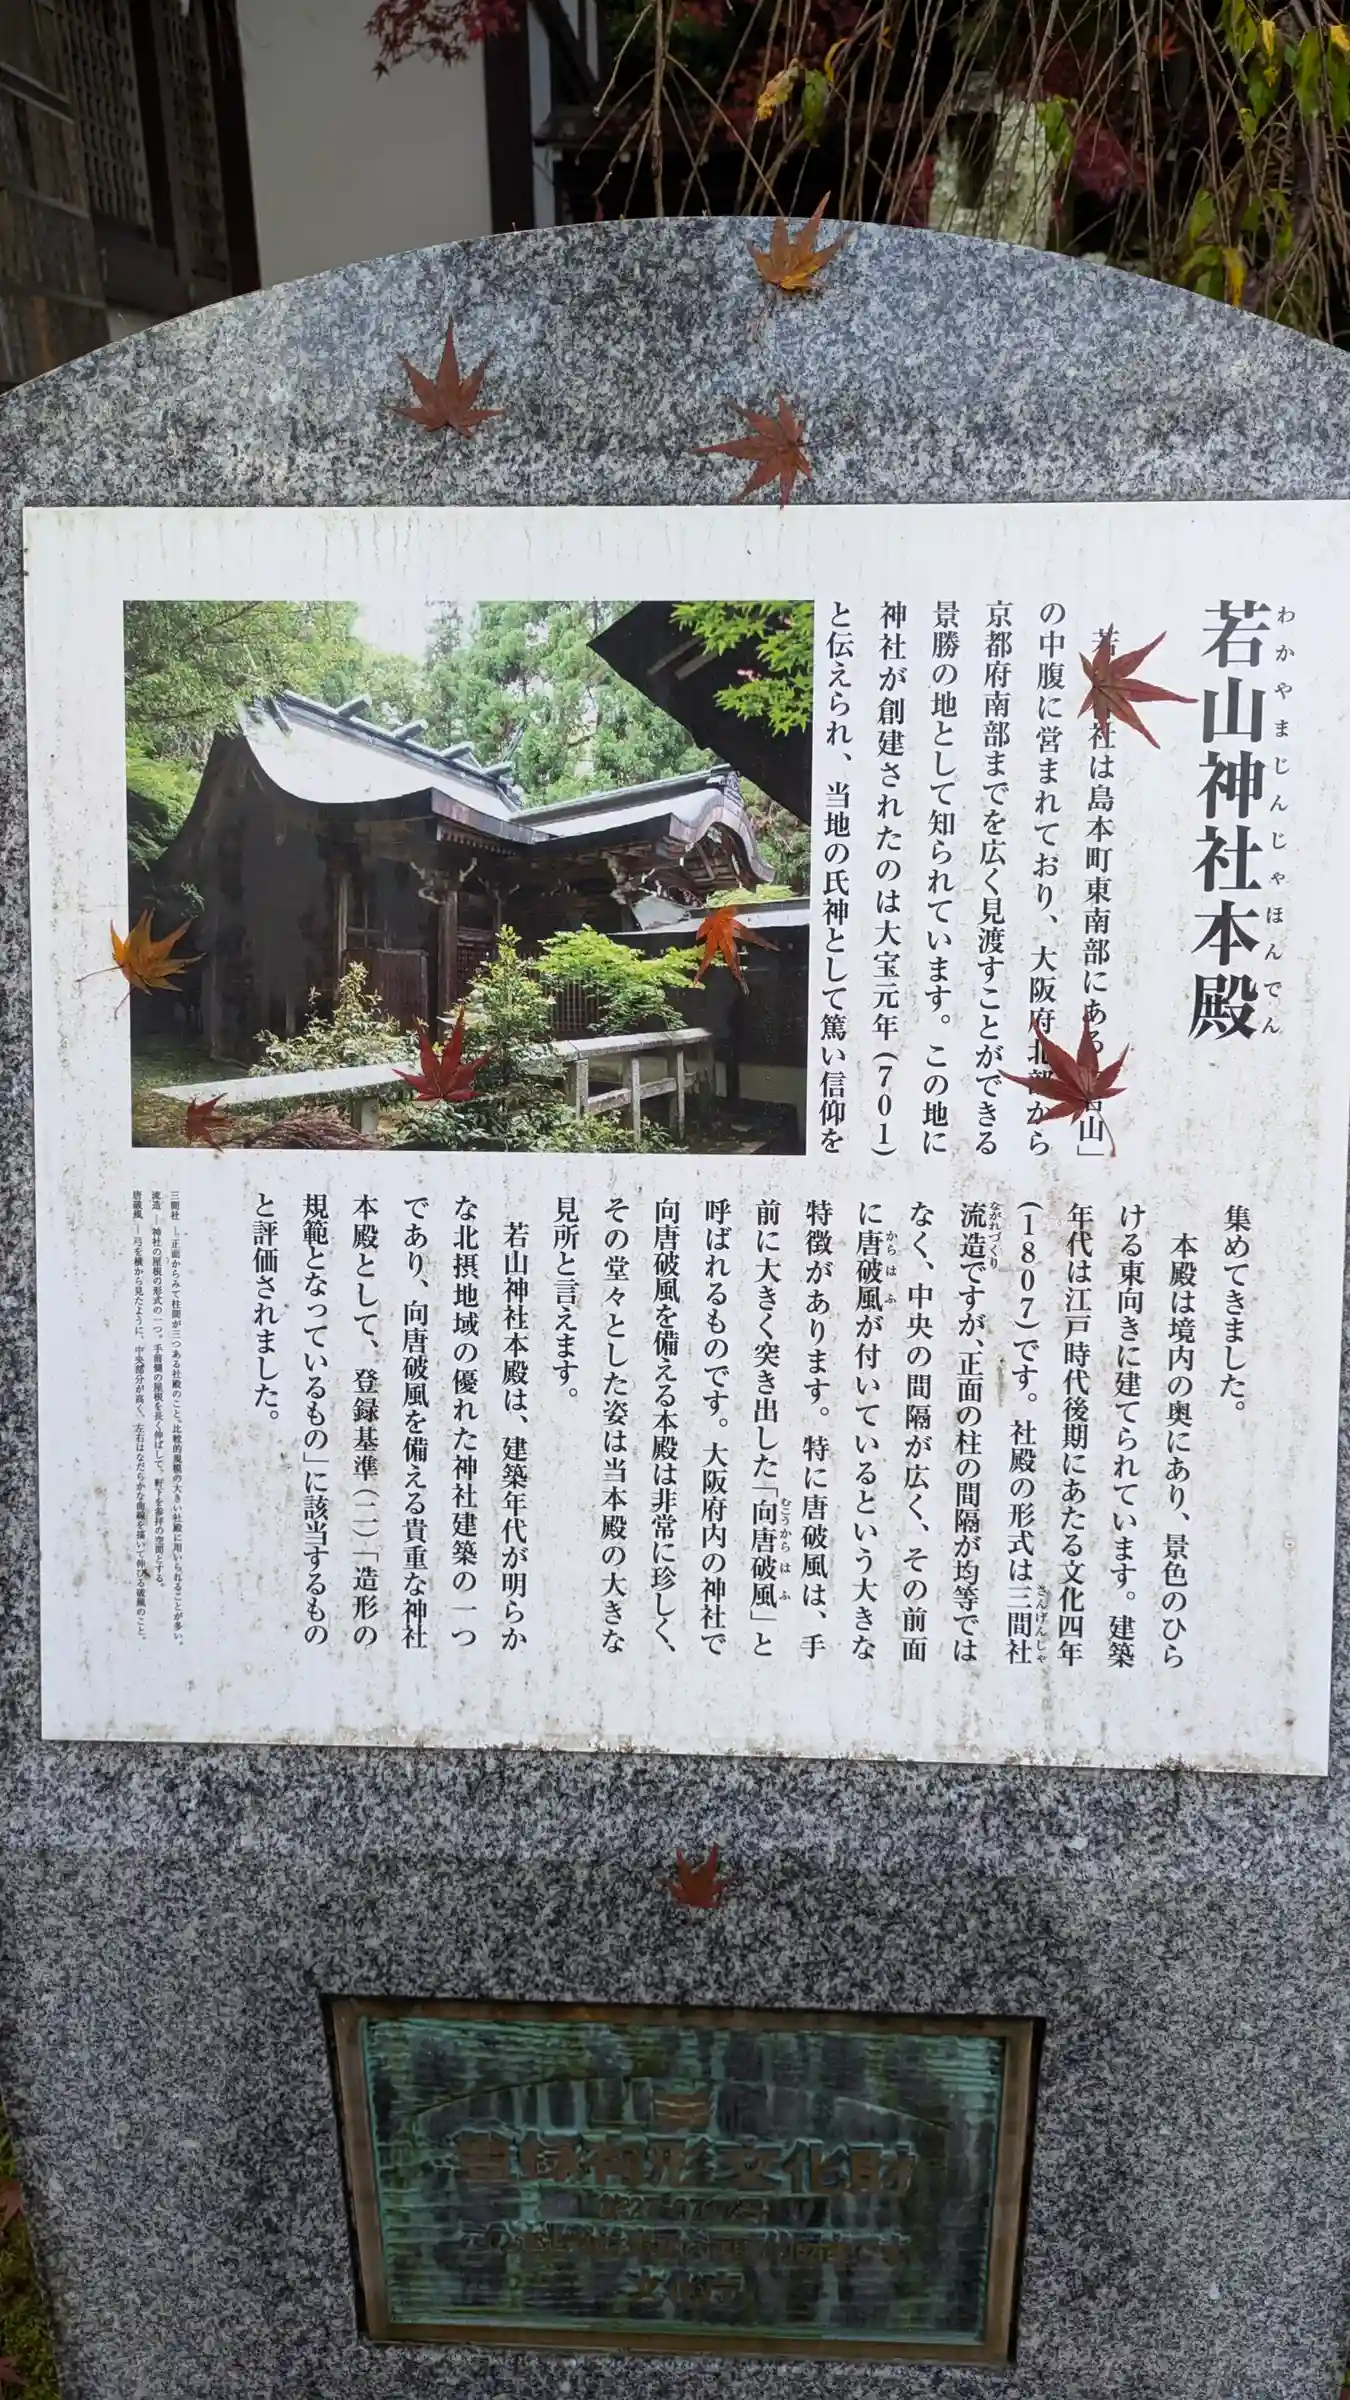 若山神社本殿
わかやまじんじゃほんでん
若 社は島本町東南部にある 山」
の中腹に営まれており、大阪府北部から
京都府南部までを広く見渡すことができる
景勝の地として知られています。この地に
神社が創建されたのは大宝元年(701)
と伝えられ、当地の氏神として篤い信仰を
集めてきました。
本殿は境内の奥にあり、景色のひら
ける東向きに建てられています。建築
年代は江戸時代後期にあたる文化四年
(1807)です。社殿の形式は三間社
さんげんしゃ
流造ですが、正面の柱の間隔が均等では
ながれづくり
なく、中央の間隔が広く、その前面
に唐破風が付いているという大きな
からはふ
特徴があります。特に唐破風は、手
前に大きく突き出した「向唐破風」と
むこうからはふ
呼ばれるものです。大阪府内の神社で
向唐破風を備える本殿は非常に珍しく、
その堂々とした姿は当本殿の大きな
見所と言えます。
若山神社本殿は、建築年代が明らか
な北摂地域の優れた神社建築の一つ
であり、向唐破風を備える貴重な神社
本殿として、登録基準(二)「造形の
規範となっているもの」に該当するもの
と評価されました。
三間社―正面からみて柱間が三つある社殿のこと。比較的規模の大きい社殿に用いられることが多い。
流造―神社の屋根の形式の一つ。手前側の屋根を長く伸ばして、軒下を参拝の空間とする。
唐破風―弓を横から見たように、中央部分が高く、左右はなだらかな曲線を描いて伸びる破風のこと。
登録有形文化財
文化庁